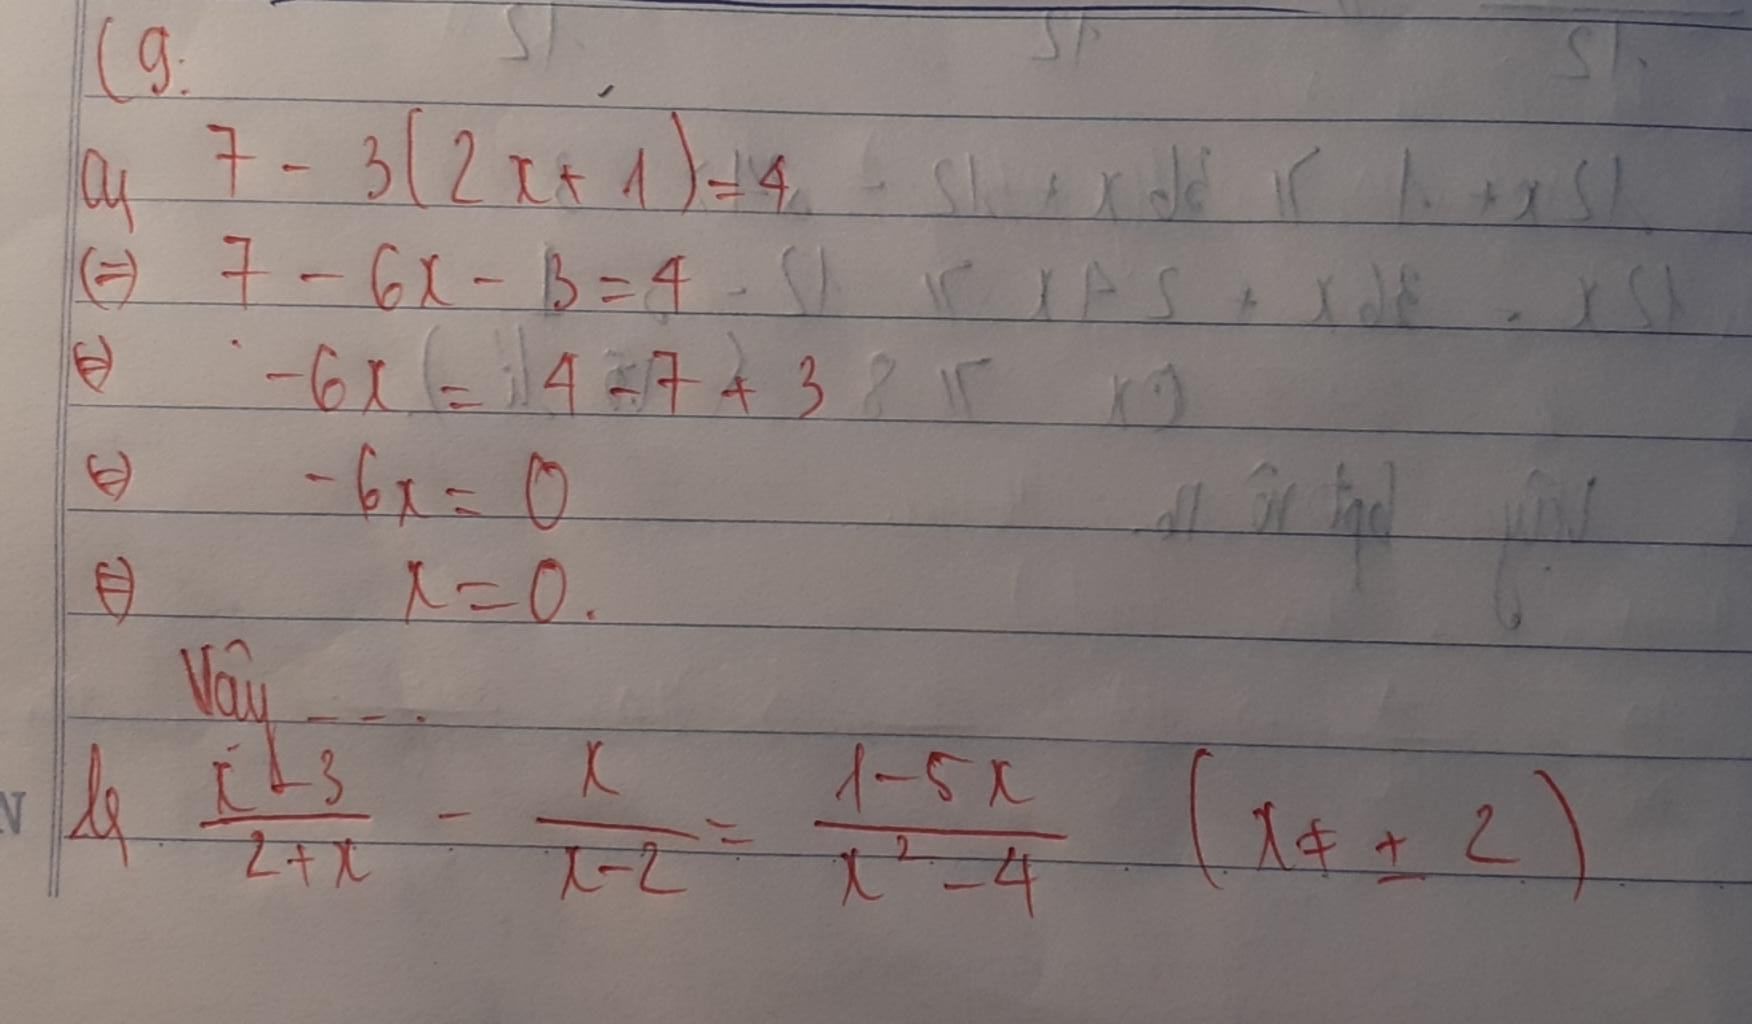 (9.
a, 7 - 3(2x + 1) = 4
(=) 7 - 6x - 3 = 4
(=) -6x = 4 - 7 + 3
(=) -6x = 0
(=) x = 0.
Vậy ....
b, (x - 3)/(2 + x) - x/(x - 2) = (1 - 5x)/(x² - 4) (x ≠ ± 2)